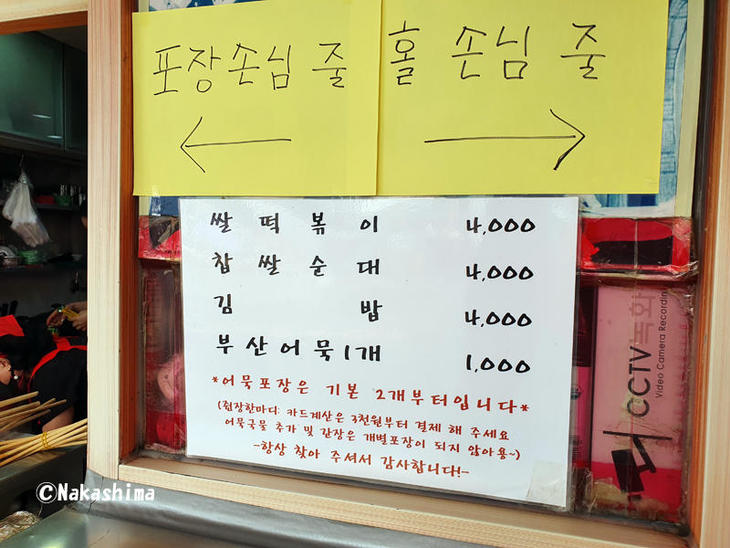 포장손님 줄
홀 손님 줄
쌀떡볶이 4,000
찹쌀순대 4,000
김밥 4,000
부산어묵1개 1,000
*어묵포장은 기본 2개부터입니다*
(쥔장한마디: 카드계산은 3천원부터 결제 해 주세요
어묵국물 추가 및 간장은 개별포장이 되지 않아용~)
-항상 찾아 주셔서 감사합니다!-
CCTV 녹화
Video Camera Recording
©Nakashima